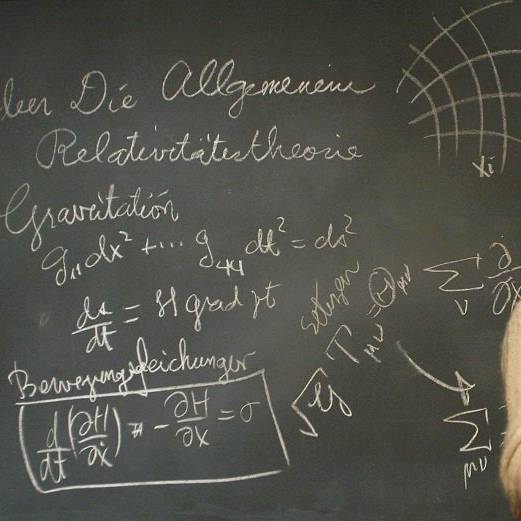 Die Allgemeine
Relativitätestheorie
xi
Gravitation
g₁₁dx² + ... g₄₄ dt² = ds²
ds/dt = H grad
Bewegungsgleichungen
d/dt (∂H/∂ẋ) = - ∂H/∂x = σ
setzen
T_μν = Θ_μν
∑_ν ∂/∂x
∑_μν